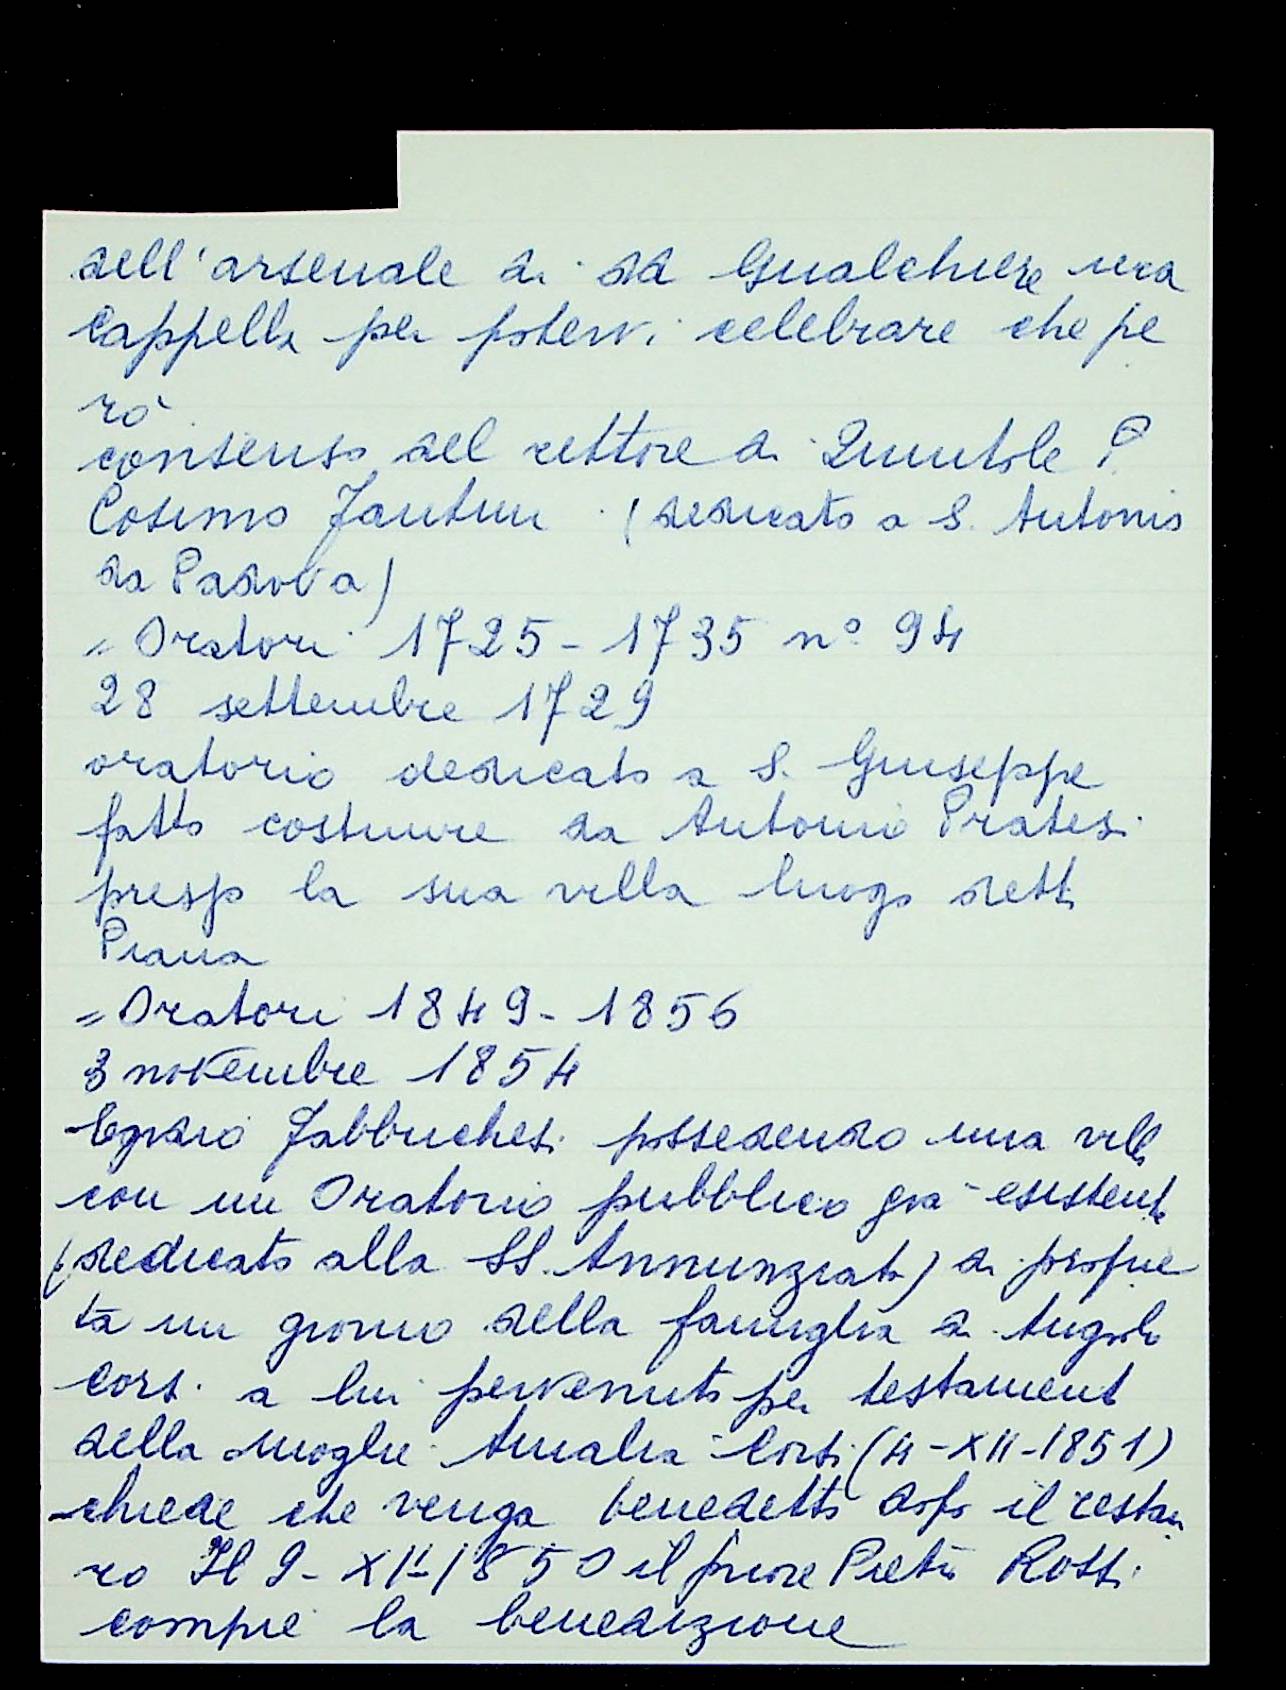 dell'arsenale di dd Gualchiere una
Cappella per potervi celebrare che pe
rò
consenso del rettore di Quintole P.
Cosimo Fantini (dedicato a S. Antonio
da Padova)
= Oratori 1725 - 1735 n° 94
28 settembre 1729
oratorio dedicato a S. Giuseppe
fatto costruire da Antonio Pratesi
presso la sua villa luogo detto
Piana
= Oratori 1849 - 1856
3 novembre 1854
Egidio Fabbruchesi possedendo una villa
con un Oratorio pubblico già esistente
(dedicato alla SS. Annunziata) di proprie
tà un giorno della famiglia di Angiolo
Corsi a lui pervenuto per testamento
della moglie Amalia Corsi (4-XII-1851)
chiede che venga benedetto dopo il restau
ro Il 9-XII-1850 il priore Pietro Rossi
compie la benedizione